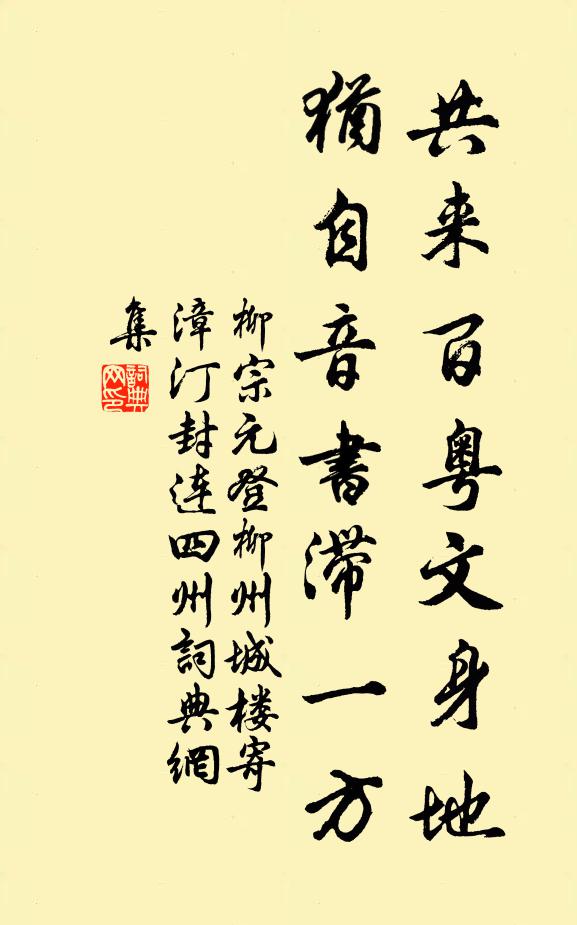 共来百粤文身地
猶自音書滞一方
柳宗元登柳州城楼寄
漳汀封连四州詞典網
集
詞典
网印